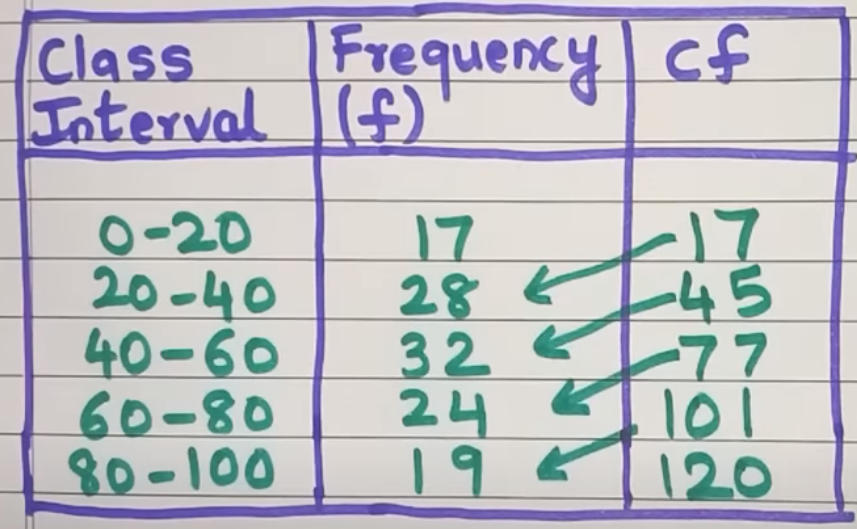 Class Interval Frequency (f) cf
0-20 17 17
20-40 28 45
40-60 32 77
60-80 24 101
80-100 19 120